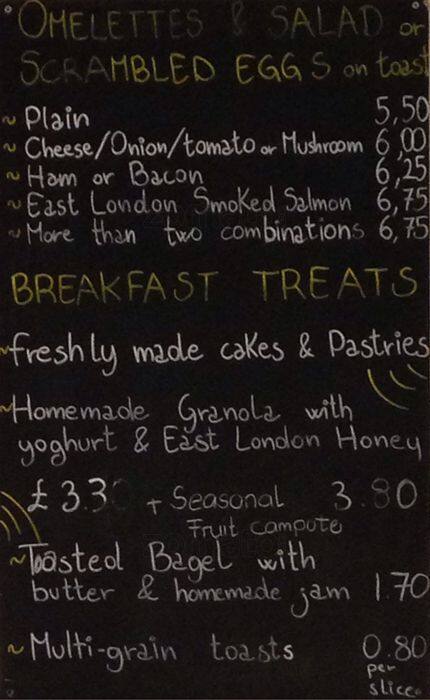 OMELETTES & SALAD or
SCRAMBLED EGGS on toast
~ Plain 5,50
~ Cheese/Onion/tomato or Mushroom 6,00
~ Ham or Bacon 6,25
~ East London Smoked Salmon 6,75
~ More than two combinations 6,75
BREAKFAST TREATS
~freshly made cakes & Pastries
~Homemade Granola with
yoghurt & East London Honey
£3.30 + Seasonal 3.80
Fruit compute
~Toasted Bagel with
butter & homemade jam 1.70
~Multi-grain toasts 0.80
per
slice